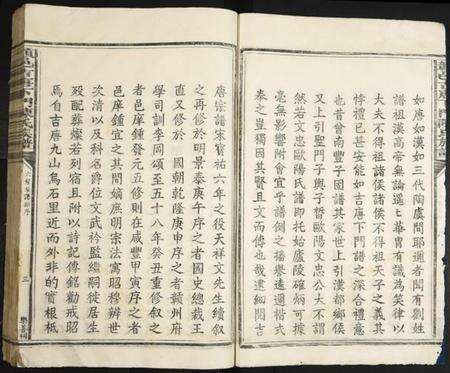 如唐如漢如三代陶虞間耶邇者間有劉姓
譜祖漢高帝無論遙遙華胄有識為笑律以
大夫不得祖諸侯諸侯不得祖天子之義其
悖禮已甚安能如吉唐下門譜之深合禮意
也昔曾南豐子固譜其家世上引漢都鄉侯
又上引聖門子輿子晳歐陽文忠公大不謂
然若文忠歐陽氏譜即托始廬陵確炳可據
毫無影響附會宜乎譜倒之揚譽遠邇楷式
泰之豈獨因其賢且文而傳也哉逮細閱吉
唐宗譜宋寶祐六年之役天祥文先生續叙
之再修於明景泰庚午序之者國史總裁王
直又修於 國朝乾隆庚申序之者贛州府
學司訓李岡頌至五十八年癸丑重修叙之
者邑庠鍾發元五修則在咸豐甲寅序之者
邑庠鍾宜之其間嫡庶明宗法寓昭穆辨世
次清以及科名爵位文武衿監繼嗣徙居生
歿配葬燦若列宿且附以詩記傳銘勸戒昭
焉自吉唐九山烏石里近而外非的實根柢
三